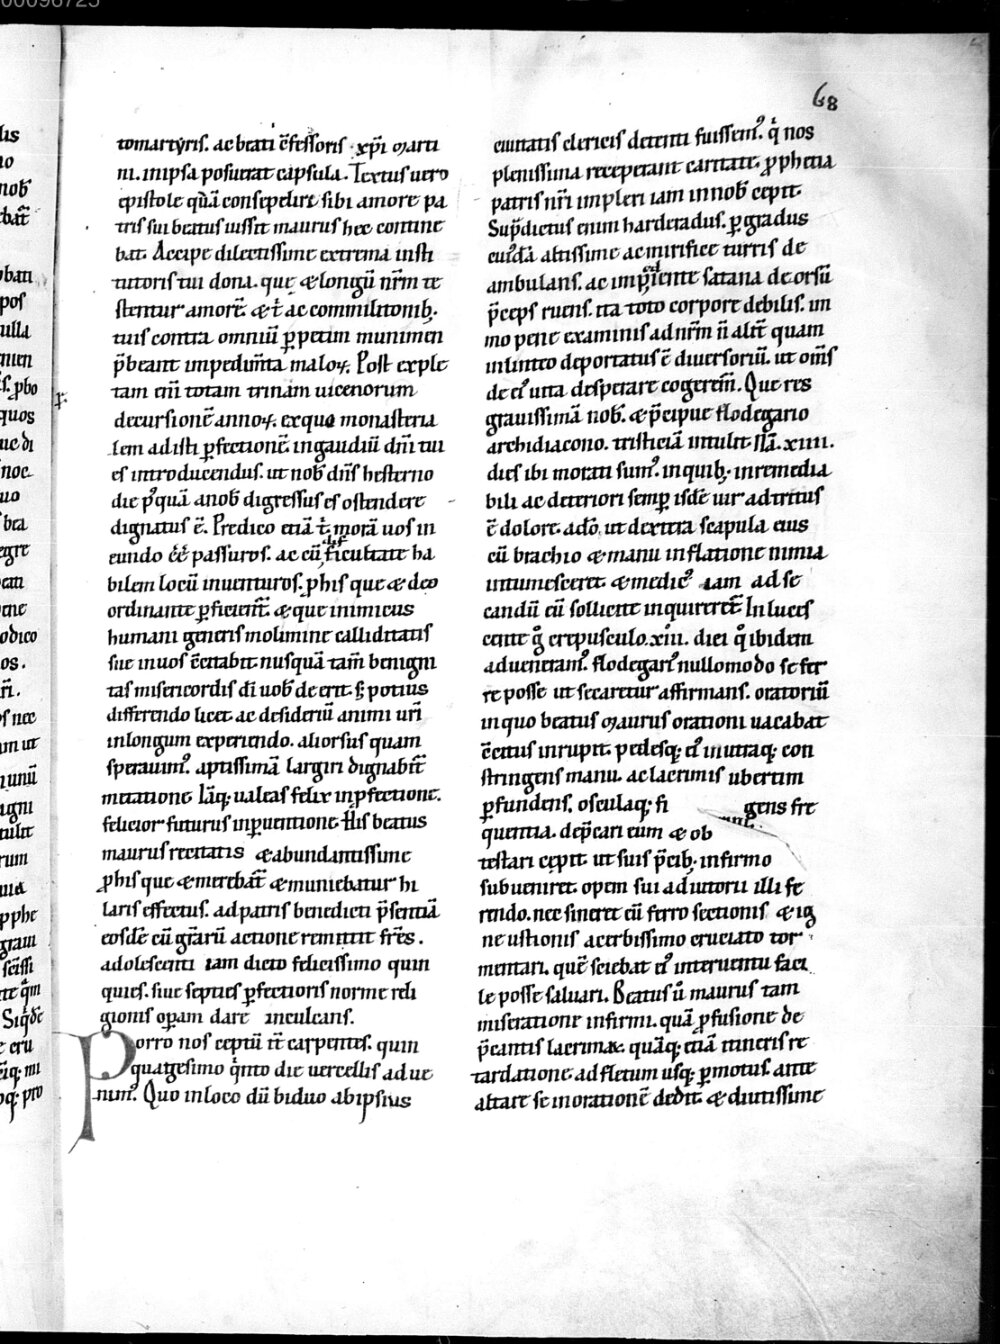 68
tomartyris. ac beati c̄fessoris xp̄i marti
ni. in ipsa posuerat capsula. Textus uero
epistole quā consepelire sibi amore pa
tris sui beatus iussit maurus hec contine
bat. Accipe dilectissime extrema insti
tutoris tui dona. que & longū nr̄m te
stentur amorē. & t̄ ac commilitonib;
tuis contra omniū p̱petim munimen
p̄beant impedim̄ta maloꝝ. Post exple
tam eni totam trinam uicenorum
decursionē annoꝝ. ex quo monasteria
lem adisti p̱fectionē. in gaudiū dn̄i tui
es introducendus. ut nob̄ dn̄s hesterno
die p᷒quā a nob̄ digressus es ostendere
dignatus ē. Predico etiā t̄ morā uos in
eundo ēē passuros. ac cū
bilem locū inuenturos. phis que & deo
ordinante p̱ficient̄. & que inimicus
humani generis molimine calliditatis
sue in uos c̄citabit. nusquā tam̄ benigni
tas misericordis dī uob̄ deerit. s; potius
differendo licet ac desideriū animi uri
in longum experiendo. aliorsus quam
sperauim᷒. aptissimā largiri dignabit̄
mutatione. Itaq; ualeas felix in p̱fectione.
felicior futurus in p̱uentione. His beatus
maurus recitatis & abundantissime
phis que & merebat̄ & muniebatur hi
laris effectus. ad patris benedicti p̄sentiā
eosdē cū gr̄arū actione remittit frēs.
adolescenti iam dicto felicissimo quin
quies. siue septies p̱fectioris norme reli
gionis op̱am dare inculcans.
Porro nos ceptū it̄ carpentes. quin
quagesimo q̇nto die uercellis adue
nim᷒. Quo in loco dū biduo ab ipsius
ciuitatis clericis detenti fuissem᷒. q̇ nos
plenissima receperant caritate. prophetia
patris nr̄i impleri iam in nob̄ cepit.
Sup̄dictus enim harderadus. p̱ gradus
cui᷒dā altissime ac mirifice turris de
ambulans. ac satana deorsū
p̄ceps ruens. ita toto corpore debilis. im
mo pene examinis ad nr̄m n̄ alit̄ quam
in linteo deportatus ē diuersoriū. ut om̄s
de ei᷒ uita desperare cogerem᷒. Que res
grauissimā nob̄. & p̄cipue flodegario
archidiacono. tristiciā intulit. Nā .xiiii.
dies ibi morati sum᷒. in quib; inremedia
bili ac deteriori semp̱ isdē uir adtritus
ē dolore. adō. ut dextera scapula eius
cū brachio & manu inflatione nimia
intumesceret. & medic᷒ iam ad se
candū eū sollicite inquireret̄. In luces
cente g̊ crepusculo .xiii. diei q̊ ibidem
adueneram᷒. flodegari᷒ nullo modo se fer
re posse ut secaretur affirmans. oratoriū
in quo beatus maurus orationi uacabat
c̄citus inrupit. pedesq; ei᷒ in utraq; con
stringens manu. ac lacrimis ubertim
p̱fundens. osculaq; fi gens fre
quentia. dep̄cari eum & ob
testari cepit. ut suis p̄cib; infirmo
subueniret. opem sui adiutorii illi fe
rendo. nec sineret eū ferro sectionis & ig
ne ustionis acerbissimo cruciato tor
mentari. quē sciebat ei᷒ interuentu faci
le posse saluari. Beatus ū maurus tam
miseratione infirmi. quā p̱fusione de
p̄cantis lacrimaꝝ. quāq; etiā itineris re
tardatione ad fletum usq; p̱motus. ante
altare se in orationē dedit. & diutissime